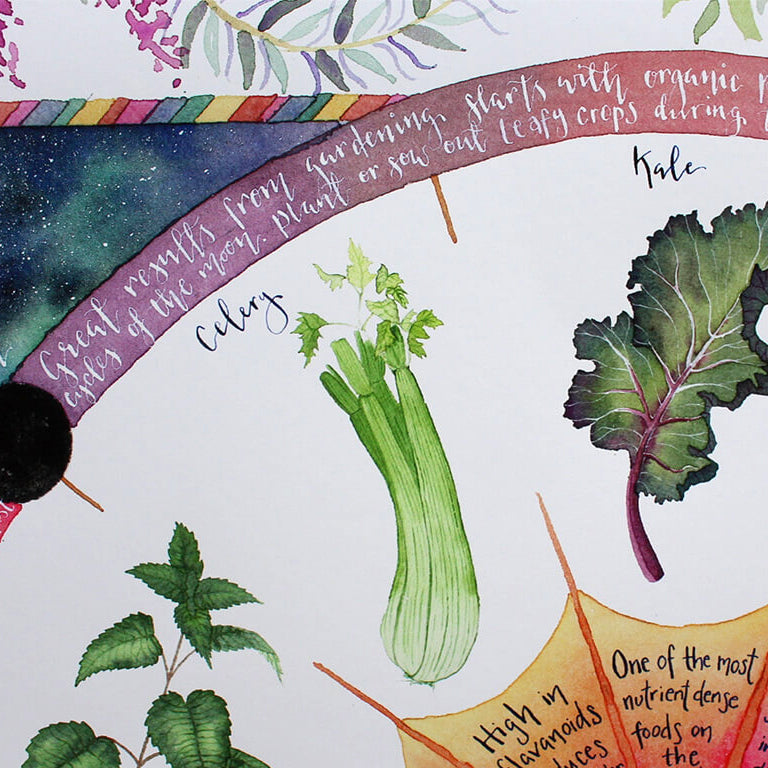 Great results from gardening starts with organic
cycles of the moon. plant or sow out leafy crops during
Kale
Celery
High in
flavanoids
One of the most
nutrient dense
foods on
the